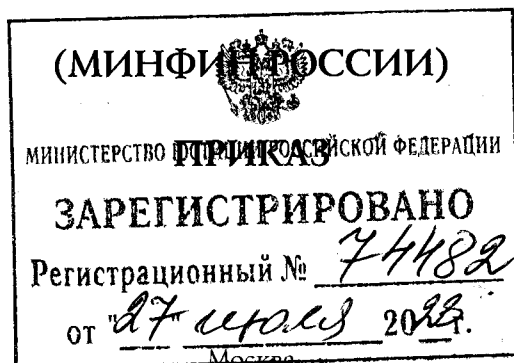 (МИНФИН РОССИИ)
МИНИСТЕРСТВО ЮСТИЦИИ РОССИЙСКОЙ ФЕДЕРАЦИИ
ПРИКАЗ
ЗАРЕГИСТРИРОВАНО
Регистрационный № 74482
от "27" июля 2023г.
Москва